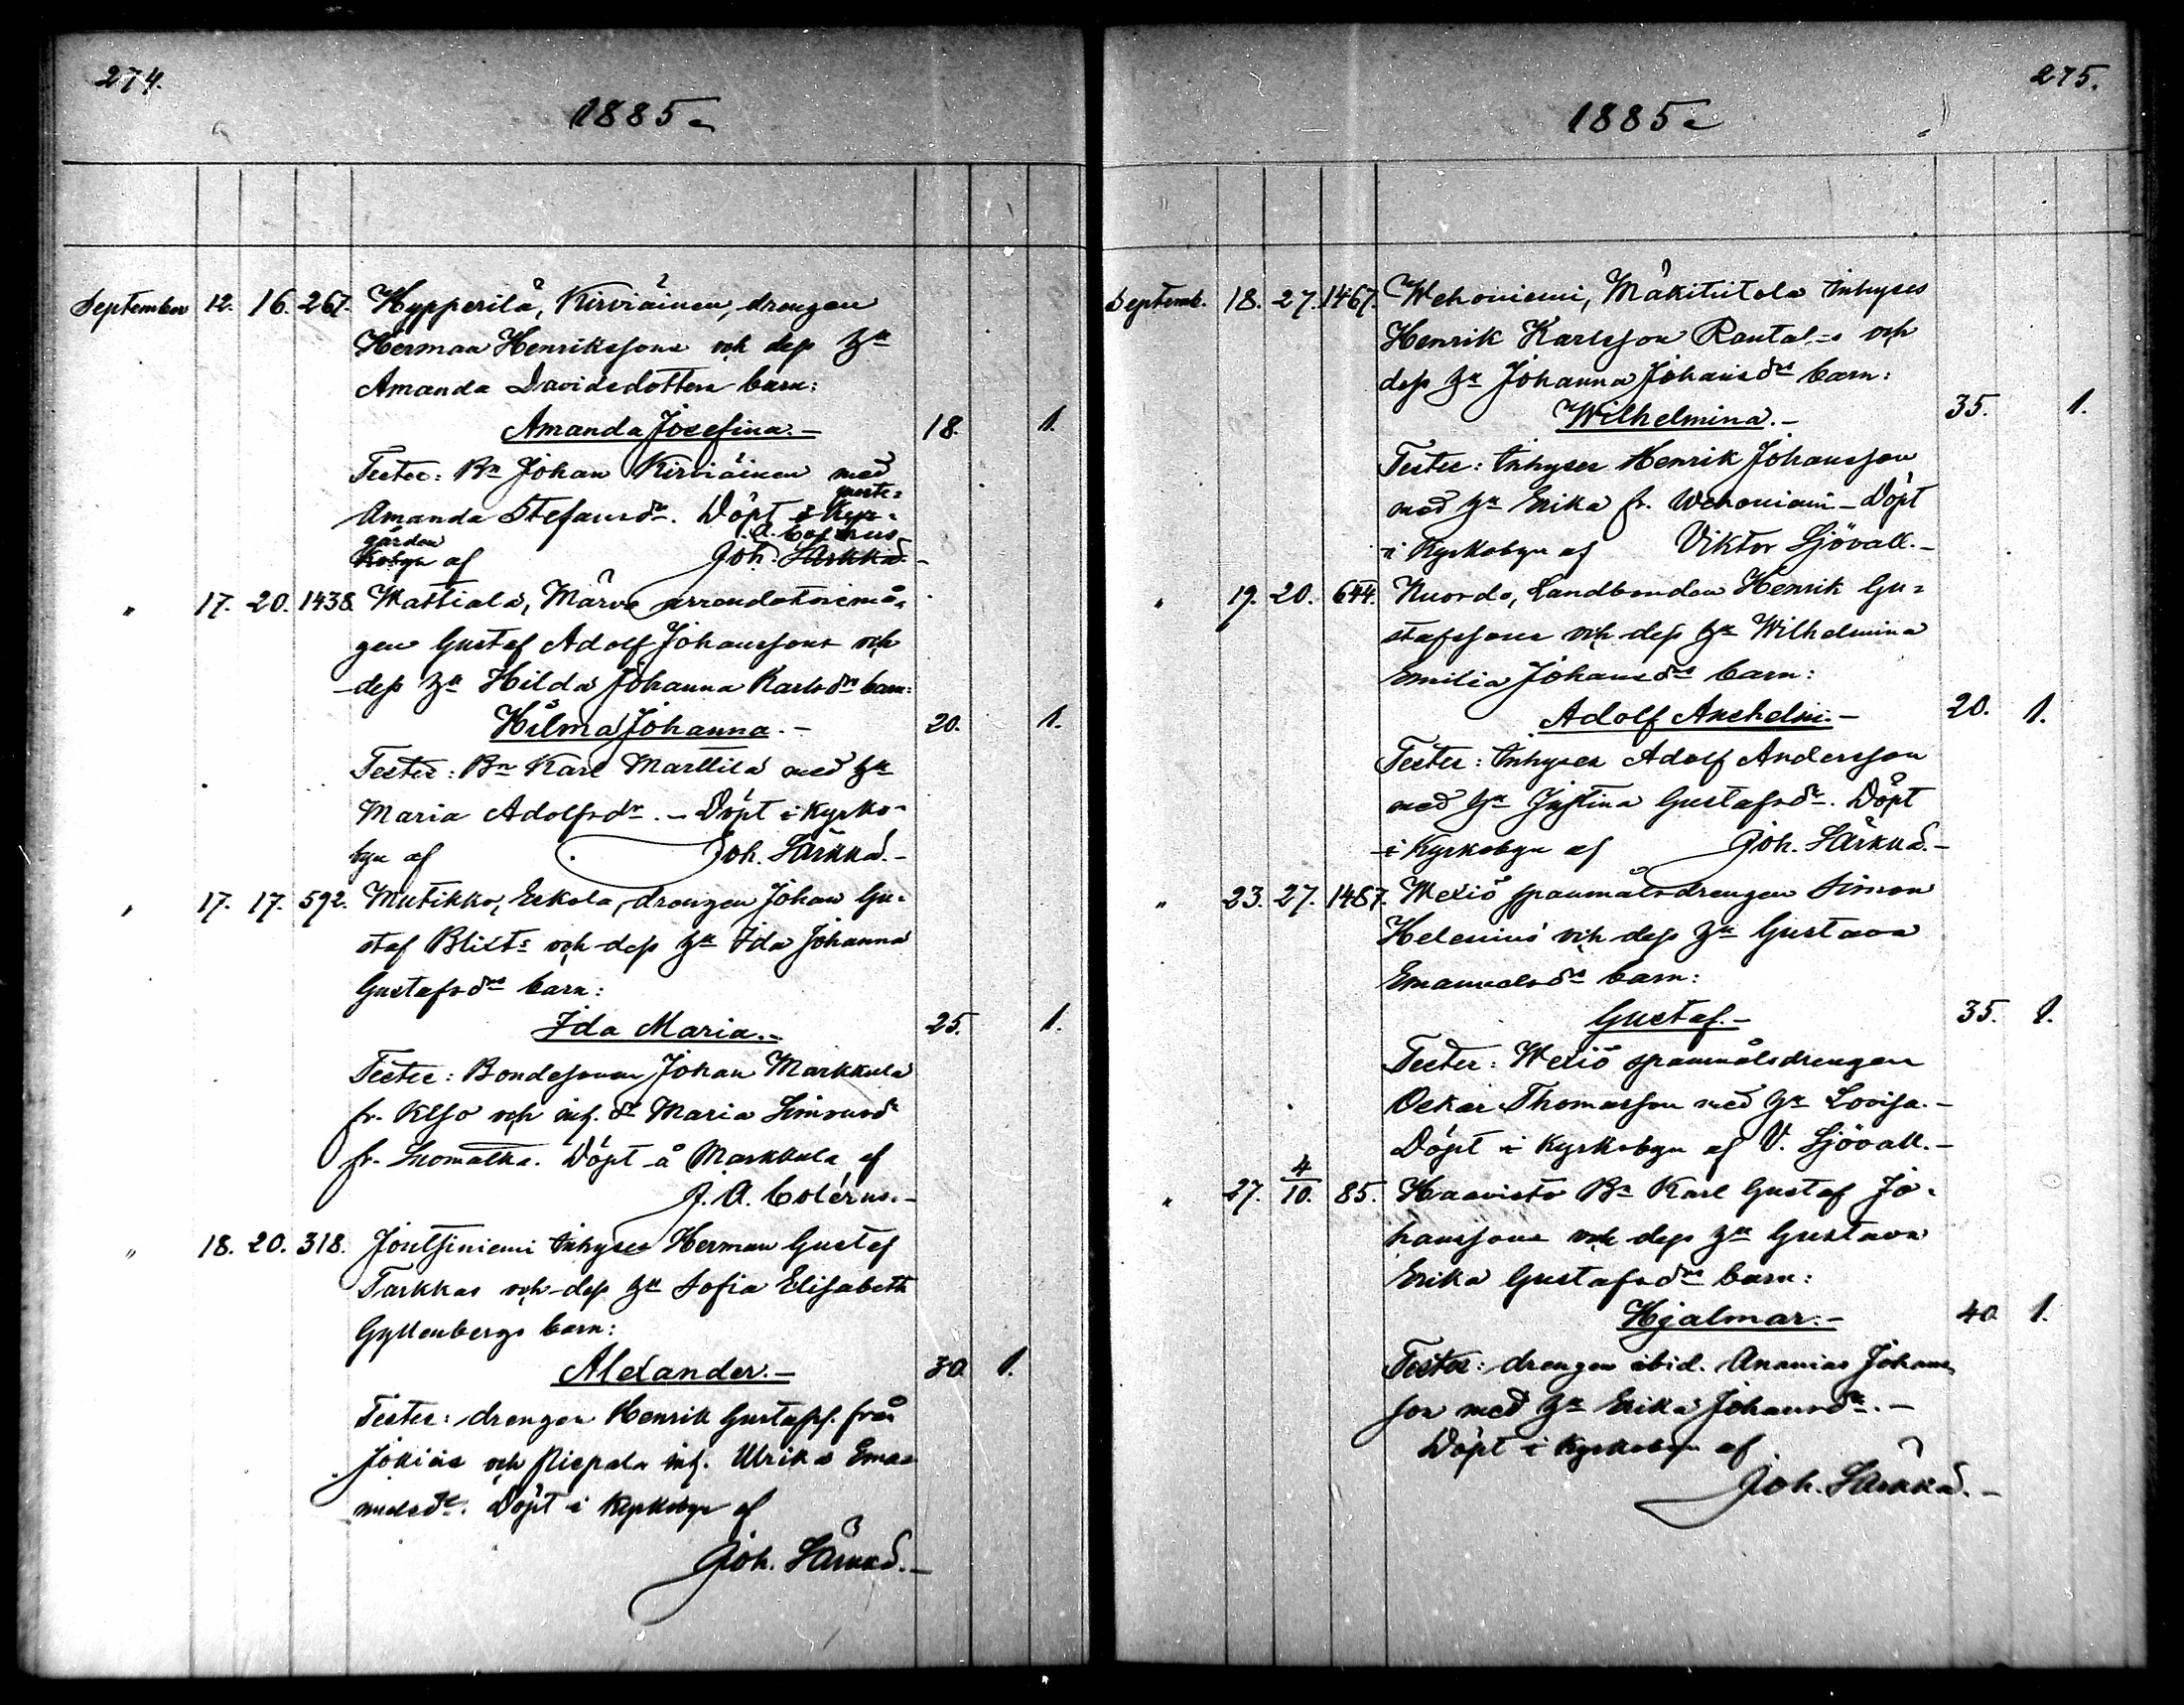 274.
1885.
September 12. 16. 267. Hypperilä, Kirviäinen, drengen
Herman Henrikssons och dess h:u
Amanda Davidsdotters barn:
Amanda Josefina.— 18. 1.
Testes: B:n Johan Kirviäinen med
Amanda Stefansd:r. Döpt i Kyr- preste-
kobyn gården af Joh. Särkkä. J. A. Colérus.
" 17. 20. 1438. Mattiala, Märva arrendatorsmå-
gen Gustaf Adolf Johanssons och
dess h:u Hilda Johanna Karlsd:rs barn:
Hilma Johanna.— 20. 1.
Testes: B:n Karl Marttila med h:u
Maria Adolfsd:r.— Döpt i Kyrko-
byn af Joh. Särkkä.—
" 17. 17. 592. Mutikko, Eskola, drengen Johan Gu-
staf Blixts och dess h:u Ida Johanna
Gustafsd:rs barn:
Ida Maria.— 25. 1.
Testes: Bondesonen Johan Markkula
fr. och inh. d:r Maria Simonsd:r
fr. Döpt å Markkula af
J. A. Colérus.—
" 18. 20. 318. Joutsiniemi Inhyses Herman Gustaf
Tarkkas och dess h:u Sofia Elisabeth
Gyllenbergs barn:
Alexander.— 30. 1.
Testes: drengen Henrik Gustafss. från
och inh. Ulrika Ema-
nuelsd:r. Döpt i Kyrkobyn af
Joh. Särkkä.—
275.
1885.
Septemb. 18. 27. 1467. Wehoniemi, Mäkitiitola Inhyses
Henrik Karlsson Rantalas och
dess h:u Johanna Johansd:rs barn:
Wilhelmina.— 35. 1.
Testes: Inhyses Henrik Johansson
med h:u Erika fr. Wehoniemi— Döpt
i Kyrkobyn af Viktor Sjövall.—
" 19. 20. 644. Nuordo, Landbonden Henrik Gu-
stafssons och dess h:u Wilhelmina
Emilia Johansd:rs barn:
Adolf Anshelm.— 20. 1.
Testes: Inhyses Adolf Andersson
med h:u Justina Gustafsd:r. Döpt
i Kyrkobyn af Joh. Särkkä.—
" 23. 27. 1487. Wexiö spanmålsdrengen Simon
Helenius och dess h:u Gustava
Emanuelsd:rs barn:
Gustaf.— 35. 1.
Testes: Wexiö spanmålsdrengen
Oskar Thomasson med h:u Lovisa.—
Döpt i Kyrkobyn af V. Sjövall.—
" 27. 4/10. 85. Haavisto B:n Karl Gustaf Jo-
hanssons och dess h:u Gustava
Erika Gustafsd:rs barn:
Hjalmar.— 40. 1.
Testes: drengen ibid. Ananias Johans-
son med h:u Erika Johansd:r.—
Döpt i Kyrkobyn af
Joh. Särkkä.—